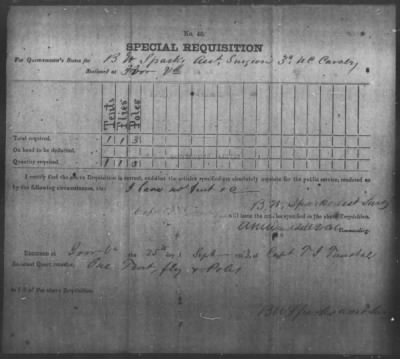 No. 40.
SPECIAL REQUISITION
For Quartermaster's Stores for B W Sparks Asst. Surgeon 3d NC Cavalry
Stationed at Va
Tents Flies Poles
Total required. 1 1 3
On hand to be deducted.
Quantity required. 1 1 3
I certify that the above Requisition is correct, and that the articles specified are absolutely requisite for the public service, rendered so
by the following circumstances, viz: I have no tent
B. W. Sparks Asst Surg
will issue the articles specified in the above Requisition.
Commanding.
Received at Va the 25th of Sept of Capt
Assistant Quartermaster, One Tent, fly & Poles
in full of the above Requisition.
B W Sparks Asst Surg